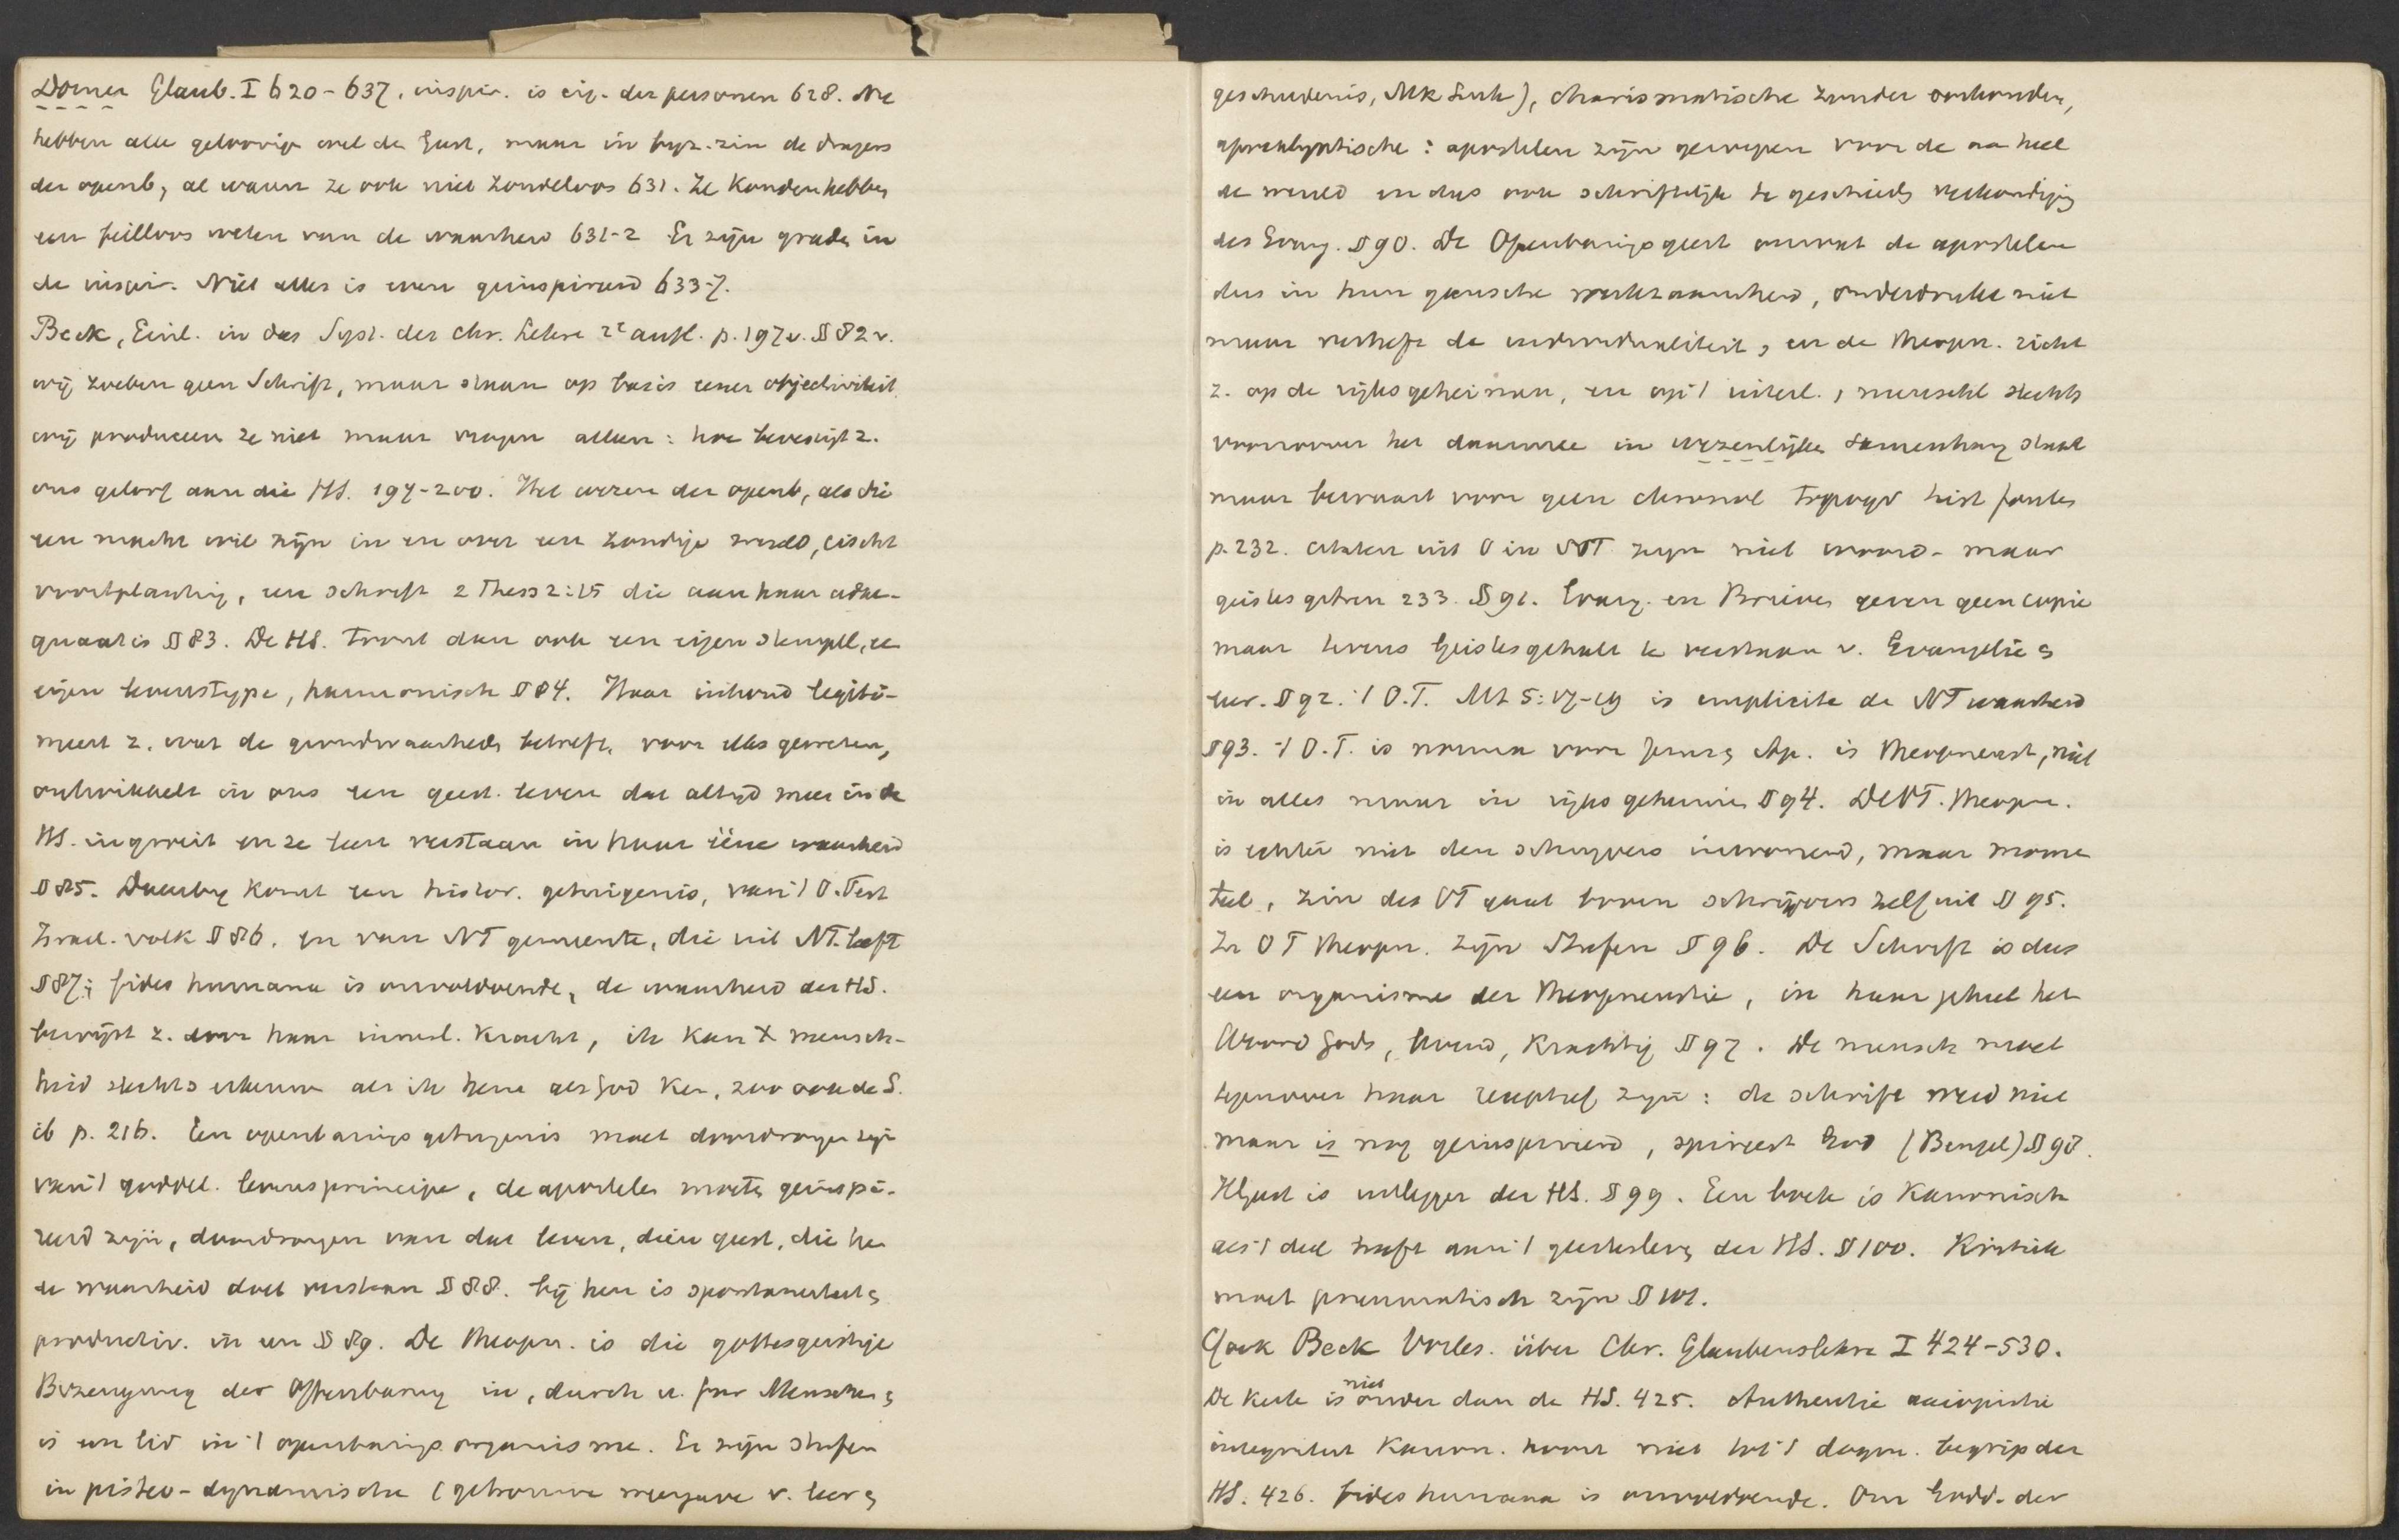 Dorner Glaub. I 620-637. inspir. is eig. der personen 628. Nu
hebben alle geloovig wel den Geest, maar in byz. zin de dragers
der openb, al waren ze ook niet zondeloos 631. Ze konden hebben
een feilloos weten van de waarheid 631-2 Er zijn graden in
de inspir. Niet alles is even geinspireerd 633-7.
Beck, Einl. in das Syst. der chr. Lehre 2e aufl. p. 197 v. § 82 v.
wij zoeken geen Schrift, maar staan op basis eener objectiviteit.
wij produceeren ze niet maar vragen alleen: hoe bevestigt z.
ons geloof aan die HS. 197-200. Het wezen der openb, als die
een macht wil zijn in en over een zondige wereld, eischt
voortplanting, een schrift 2 Thess 2:15 die aan haar adae-
quaat is § 83. De HS. troont dan ook een eigen stempel, ee
eigen levenstype, harmonisch § 84. Haar inhoud legiti-
meert z. wat de grondwaarheden betreft, voor elks geweten,
ontwikkelt in ons een geest. leven dat altijd meer in de
HS. ingroeit en ze leert verstaan in haar ééne waarheid
§ 85. Daarbij komt een histor. getuigenis, van 't O. Test
Israel. volk § 86. en van NT gemeente, die uit NT. leeft
§ 87; fides humana is onvoldoende, de waarheid der HS.
bewijst z. door haar innerl. kracht, ik kan X mensch-
heid slechts erkennen als ik hem als God ken, zoo ook de S.
ib p. 216. Een openbarings getuigenis moet doordrongen zijn
van 't goddel. levensprincipe, de apostelen moeten geinspi-
reerd zijn, doordrongen van dat leven, dien geest, die hen
de waarheid doet verstaan § 88. bij hen is spontaneiteit en
productiv. in een § 89. De Theopn. is die gottesgeistige
Bezeugung der Offenbarung in, durch u. für Menschen en
is een lid in 't openbarings organisme. Er zijn stufen
in pisteo-dynamische (getrouwe weergave v. leer en
geschiedenis, Mk Luk), charismatische zender oorkonden,
apocalyptische: apostelen zijn geroepen voor de aan heel
de wereld en dus ook schriftelijk te geschieden verkondiging
des Evang. § 90. De Openbaringsgeest omvat de apostelen
dus in hun gansche werkzaamheid, onderdrukt niet
maar verheft de individualiteit, en de theopn. richt
z. op de rijksgeheimen, en op 't uiterl., menschel slechts
voorzoover het daarmee in wezenlijken samenhang staat
maar bewaart voor geen chronol topogr hist fouten
p. 232. citaten uit O in NT zijn niet woord- maar
geistesgetreu 233. § 91. Evang. en Brieven geven geen copie
maar levens Geistesgehalt te verstaan v. Evangelie en
leer. § 92. 't O.T. Mt 5:17-19 is implicite de NT waarheid
§ 93. 't O.T. is norma voor Jezus en Ap. is theopneust, niet
in alles maar in rijksgeheimen § 94. De OT. theopn.
is echter niet den schrijvers inwonend, maar momen
teel, zin des OT gaat boven schrijvers zelf uit § 95.
In OT theopn. zijn Stufen § 96. De Schrift is dus
een organisme der theopneustie, in haar geheel het
Woord Gods, levend, krachtig § 97. De mensch moet
tegenover haar receptief zijn: de schrift werd niet
maar is nog geinspireerd, spireert God (Bengel) § 98.
HGeest is uitlegger der HS. § 99. Een boek is kanonisch
als 't deel heeft aan 't geestesleven der HS. § 100. Kritiek
moet pneumatisch zijn § 101.
Ook Beck Vorles. über Chr. Glaubenslehre I 424-530.
De kerk is niet onder dan de HS. 425. Authentie axiopistie
integriteit kanon. hoort niet tot 't dogm. begrip der
HS. 426. fides humana is onvoldoende. Om Godd. der